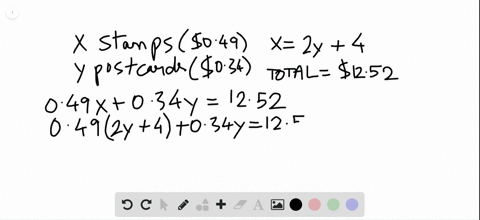 X stamps ($0.49) x = 2y + 4
Y postcards ($0.34) TOTAL = $12.52
0.49x + 0.34y = 12.52
0.49(2y + 4) + 0.34y = 12.5